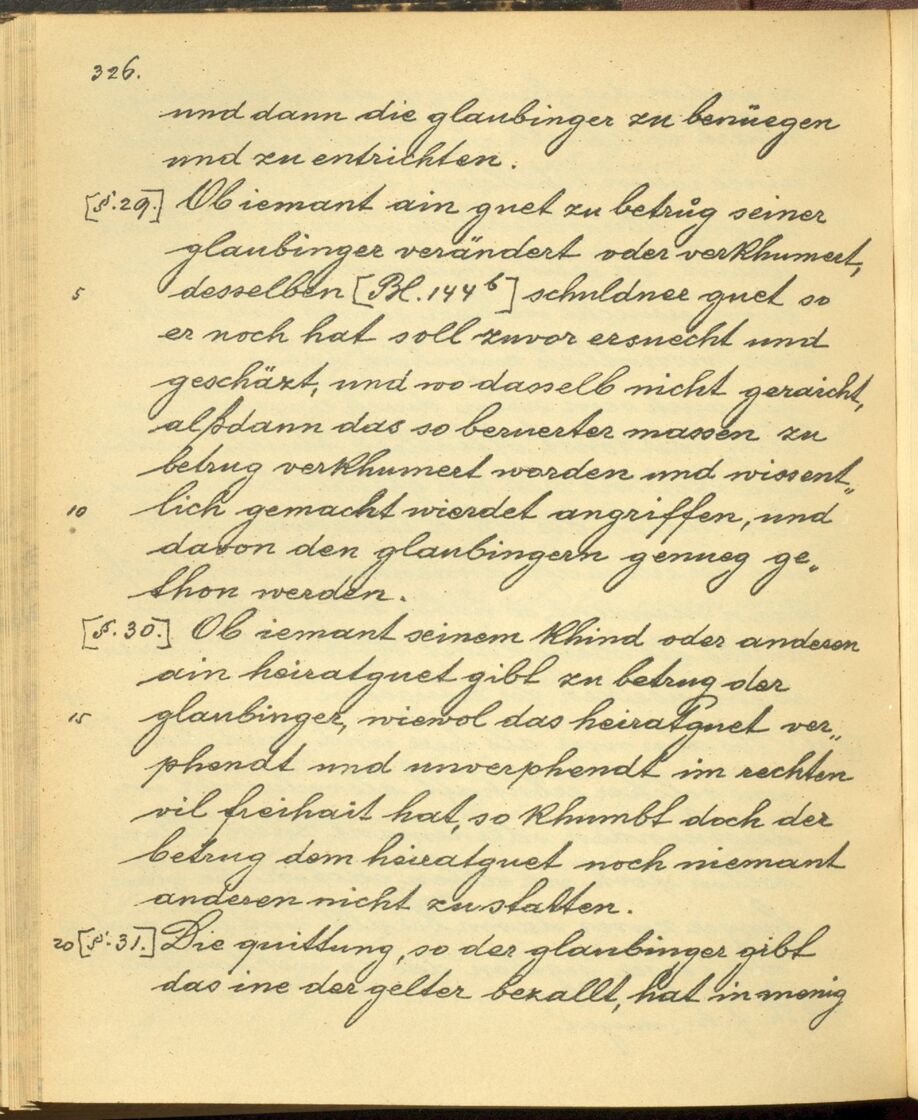 326.
und dann die glaubinger zu benüegen
und zu entrichten.
[§. 29.] Ob iemant ain guet zu betrůg seiner
glaubinger verändert oder verkhumert,
5 desselben [Bl. 144 b] schuldner guet so
er noch hat soll zuvor ersuecht und
geschäzt, und wo dasselb nicht geraicht,
alßdann das so beruerter massen zu
betrug verkhumert worden und wissent„
10 lich gemacht wierdet angriffen, und
davon den glaubingern genueg ge„
thon werden.
[§. 30.] Ob iemant seinem khind oder anderen
ain heiratguet gibt zu betrug der
15 glaubinger, wiewol das heiratguet ver„
phendt und unverphendt im rechten
vil freihait hat, so khumbt doch der
betrug dem heiratguet noch niemant
anderen nicht zu statten.
20 [§. 31.] Die quittung, so der glaubinger gibt
das ine der gelter bezallt, hat in menig